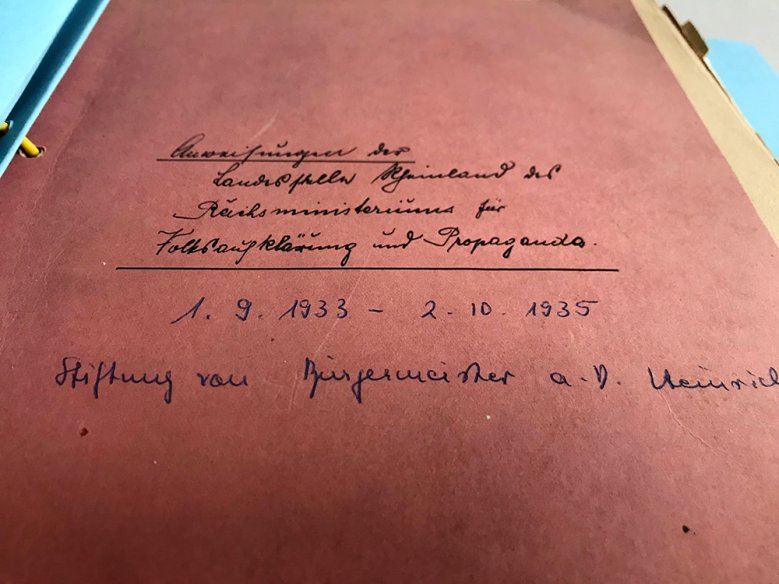 Anweisungen der
Landesstelle Rheinland des
Reichsministeriums für
Volksaufklärung und Propaganda.
1. 9. 1933 - 2. 10. 1935
Stiftung von Bürgermeister a. D. Heinrich